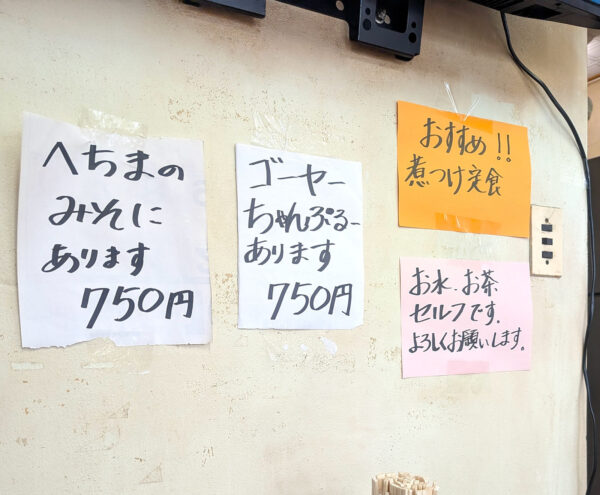 へちまの
みそに
あります
750円
ゴーヤー
ちゃんぷるー
あります
750円
おすすめ!!
煮つけ定食
お水、お茶
セルフです。
よろしくお願いします。